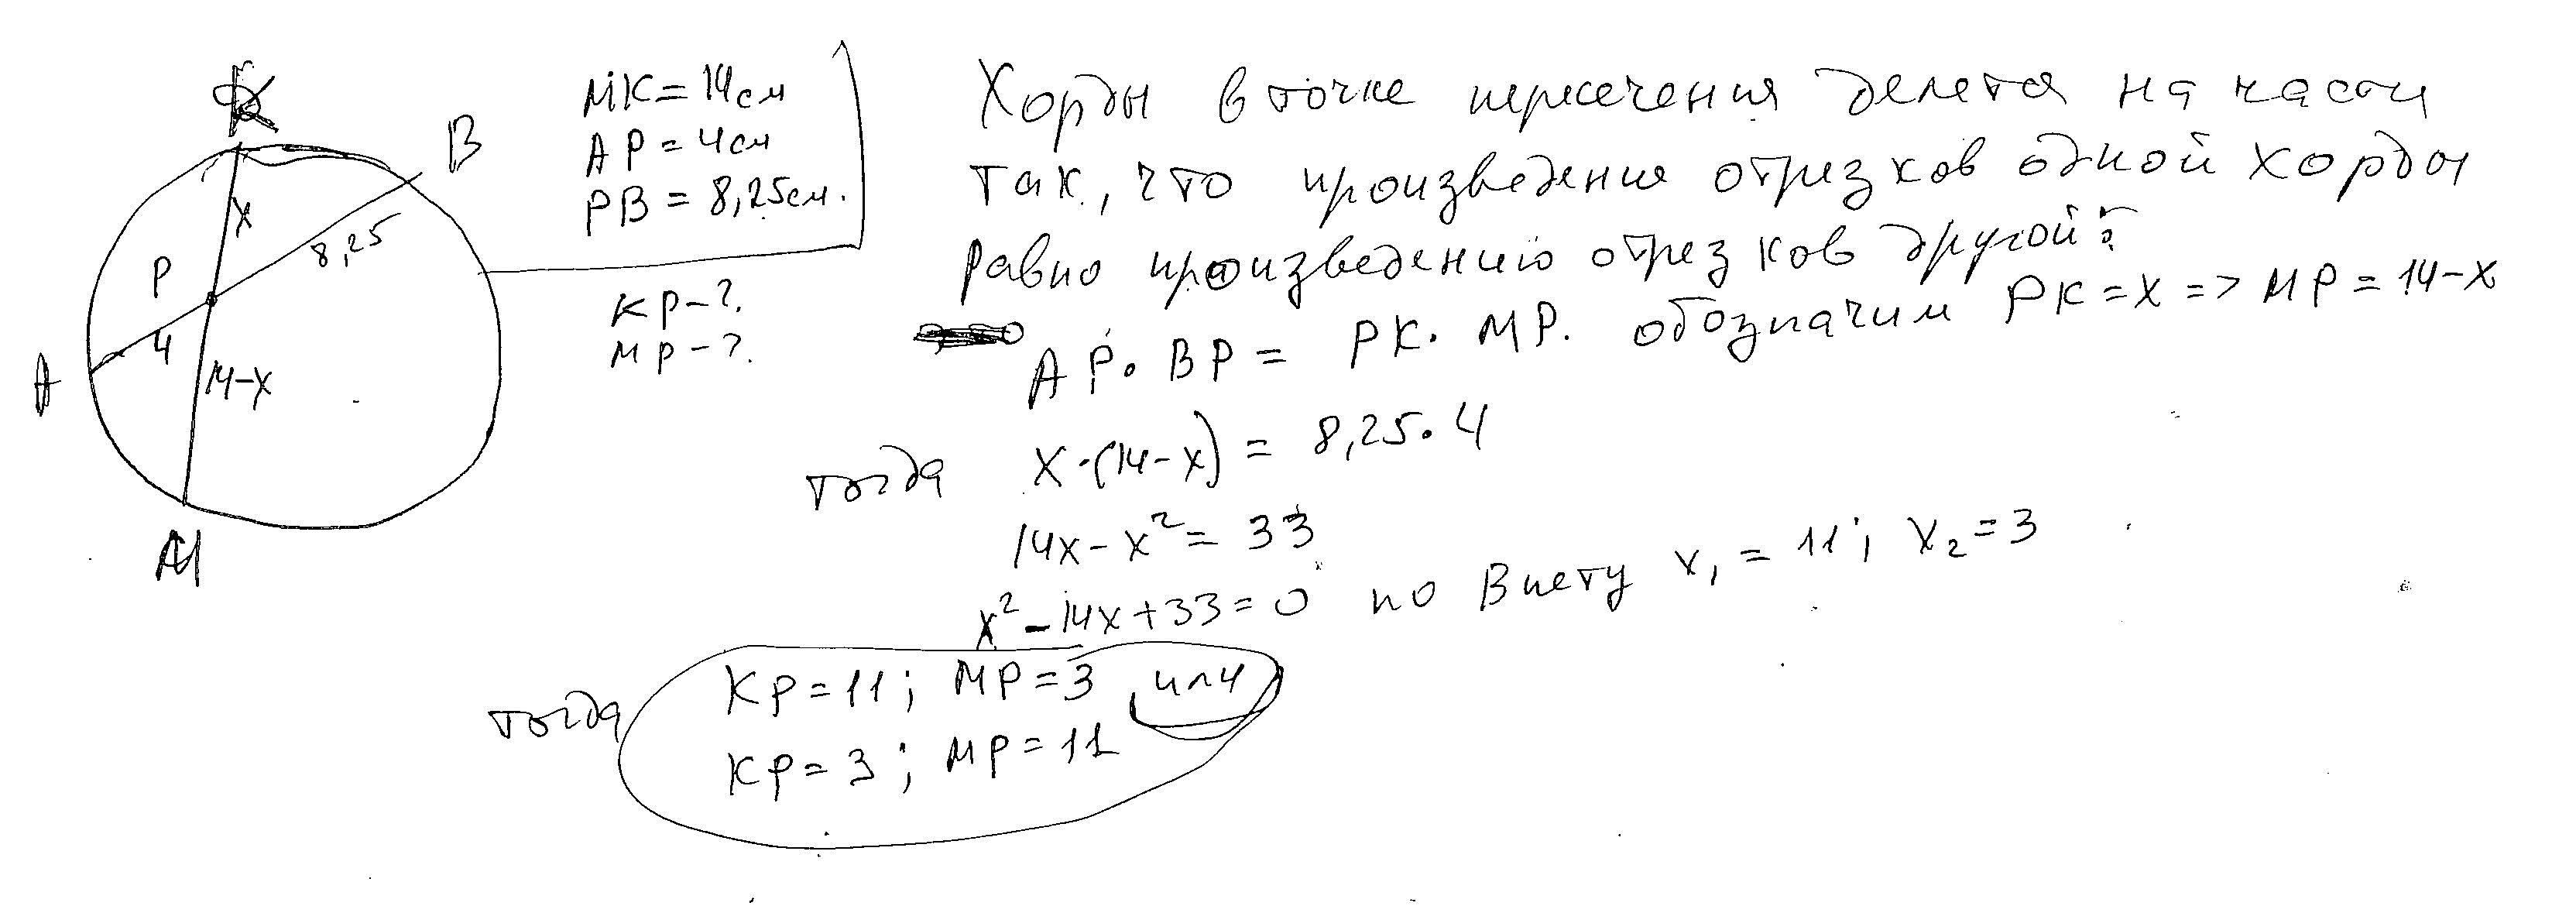 K
B
MK = 14 см
AP = 4 см
PB = 8,25 см.
KP - ?
MP - ?
X
8,25
P
4
14-X
A
M
Хорды в точке пересечения делется на части
так, что произведения отрезков одной хорды
равно произведению отрезков другой:
AP · BP = PK · MP. обозначим PK = X => MP = 14-X
тогда X·(14-X) = 8,25·4
14X - X² = 33
X² - 14X + 33 = 0 по Виету X₁ = 11; X₂ = 3
тогда KP = 11; MP = 3 или
KP = 3; MP = 11